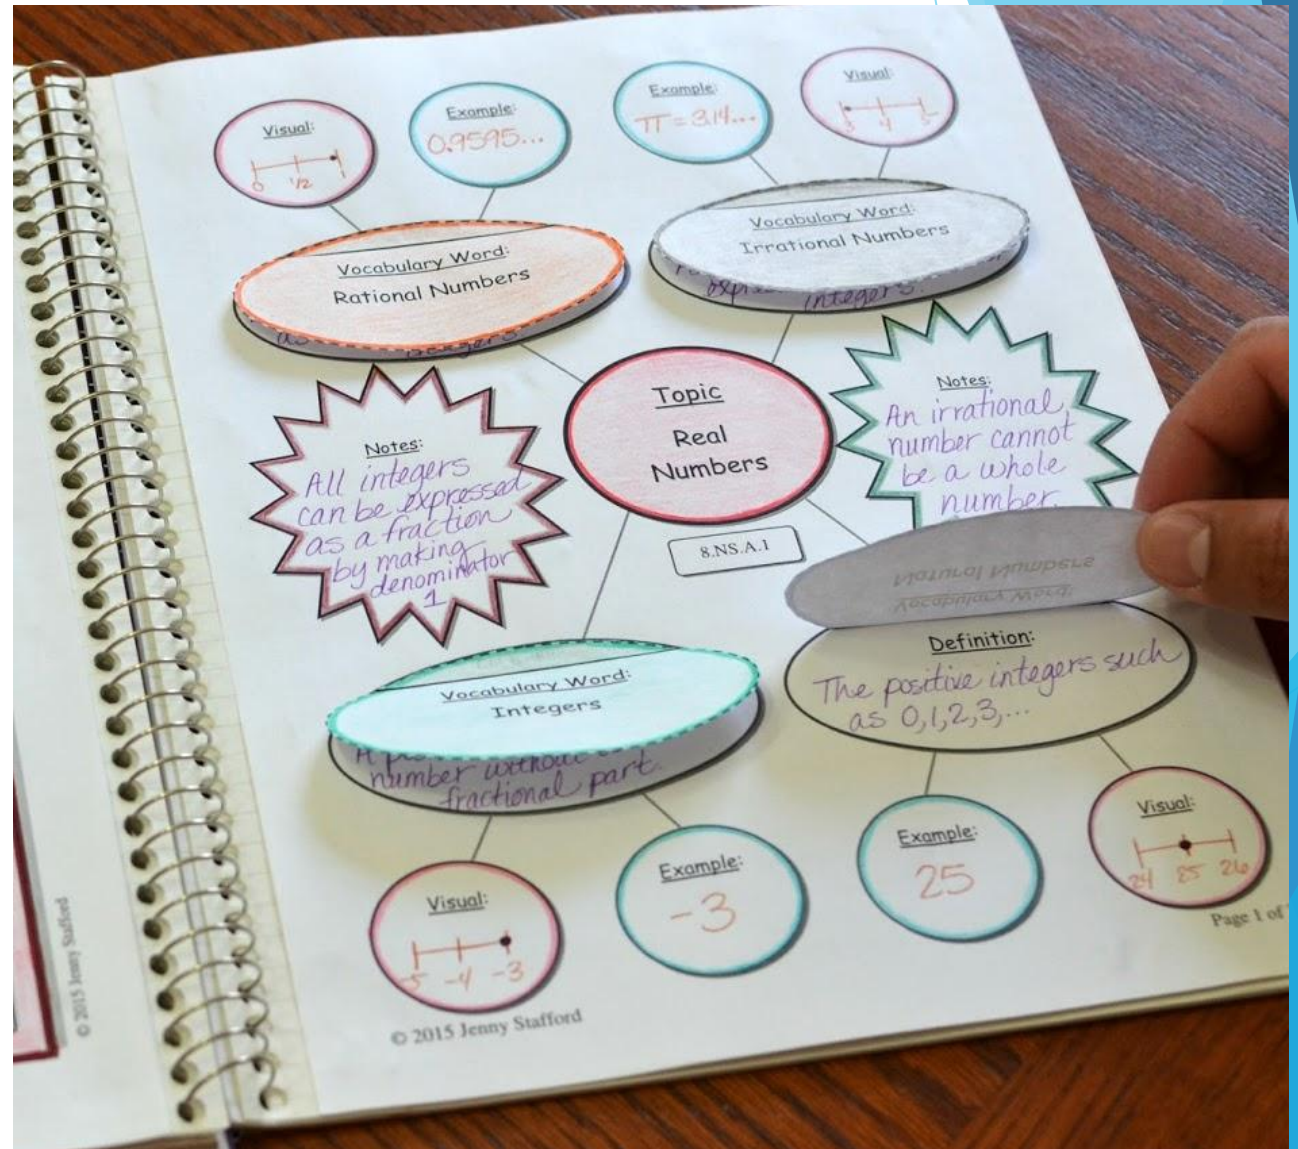 Visual:
0 1/2 1
Example:
0.9595...
Example:
π = 3.14...
Visual:
3 4 5
Vocabulary Word:
Rational Numbers
as
integers.
Vocabulary Word:
Irrational Numbers
integers.
Topic
Real
Numbers
8.NS.A.1
Notes:
All integers
can be expressed
as a fraction
by making
denominator
1
Notes:
An irrational
number cannot
be a whole
number.
Vocabulary Word:
Natural Numbers
Definition:
The positive integers such
as 0,1,2,3,...
Vocabulary Word:
Integers
A
number without
fractional part.
Visual:
-5 -4 -3
Example:
-3
Example:
25
Visual:
24 25 26
Page 1 of
© 2015 Jenny Stafford
© 2015 Jenny Stafford